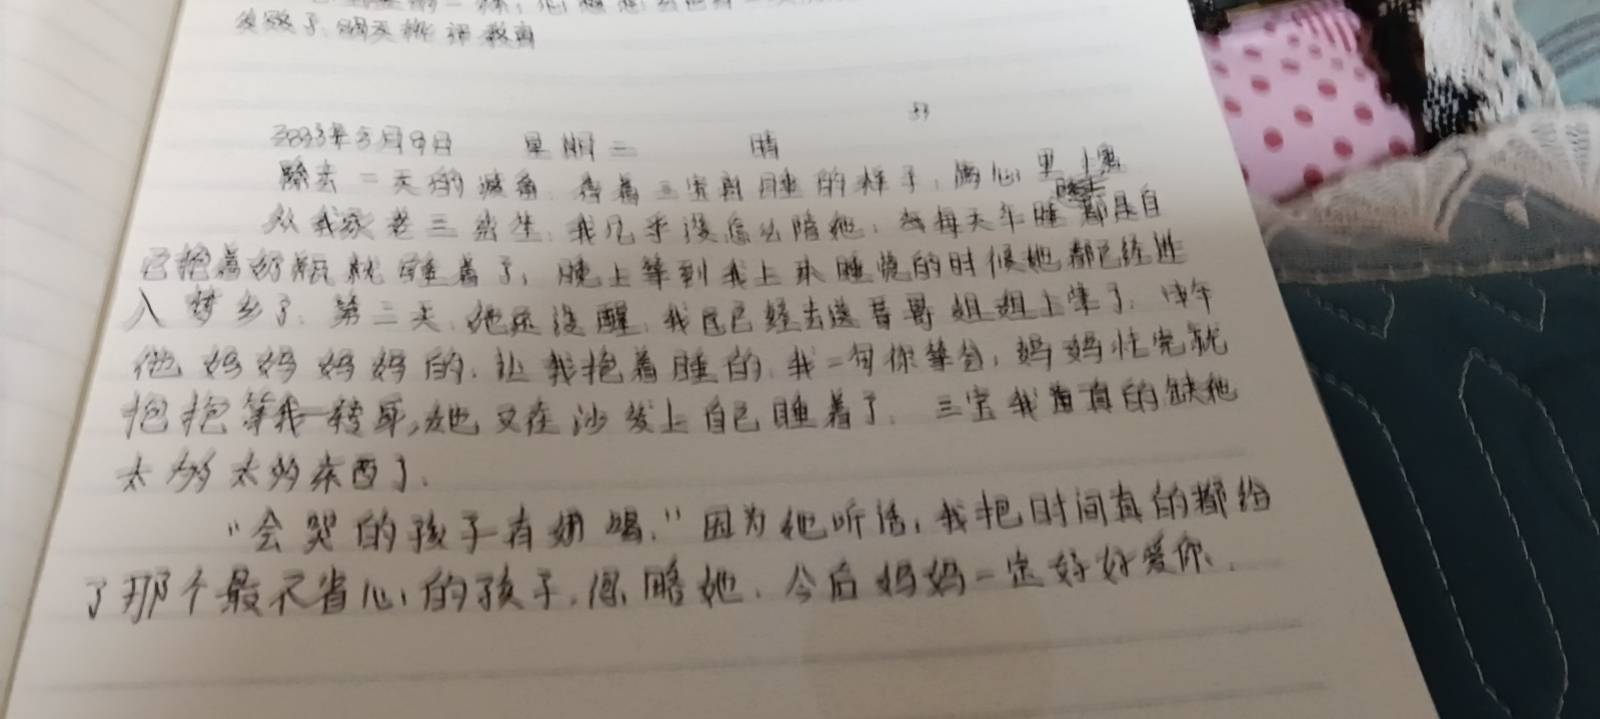 明天 教育
33
2023年5月9日 星期二 晴
除去一天的疲惫,看着三宝真睡的样子,内心里
从我家老三出生,我几乎没怎么陪她,每天午睡都是自
己抱着奶瓶就睡着了,晚上等到我上床睡觉的时候她都已经进
入梦乡了.第二天,她还没醒,我已经去送哥哥姐姐上学了.中午
他妈妈妈妈的,让我抱着睡的,我一句你等会,妈妈忙完就
抱抱等我一转身,她又在沙发上自己睡着了.三宝我真的缺他
太多太多东西了.
“会哭的孩子有奶喝,”因为他听话,我把时间真的都给
了那个最不省心的孩子,忽略她,今后妈妈一定好好爱你.